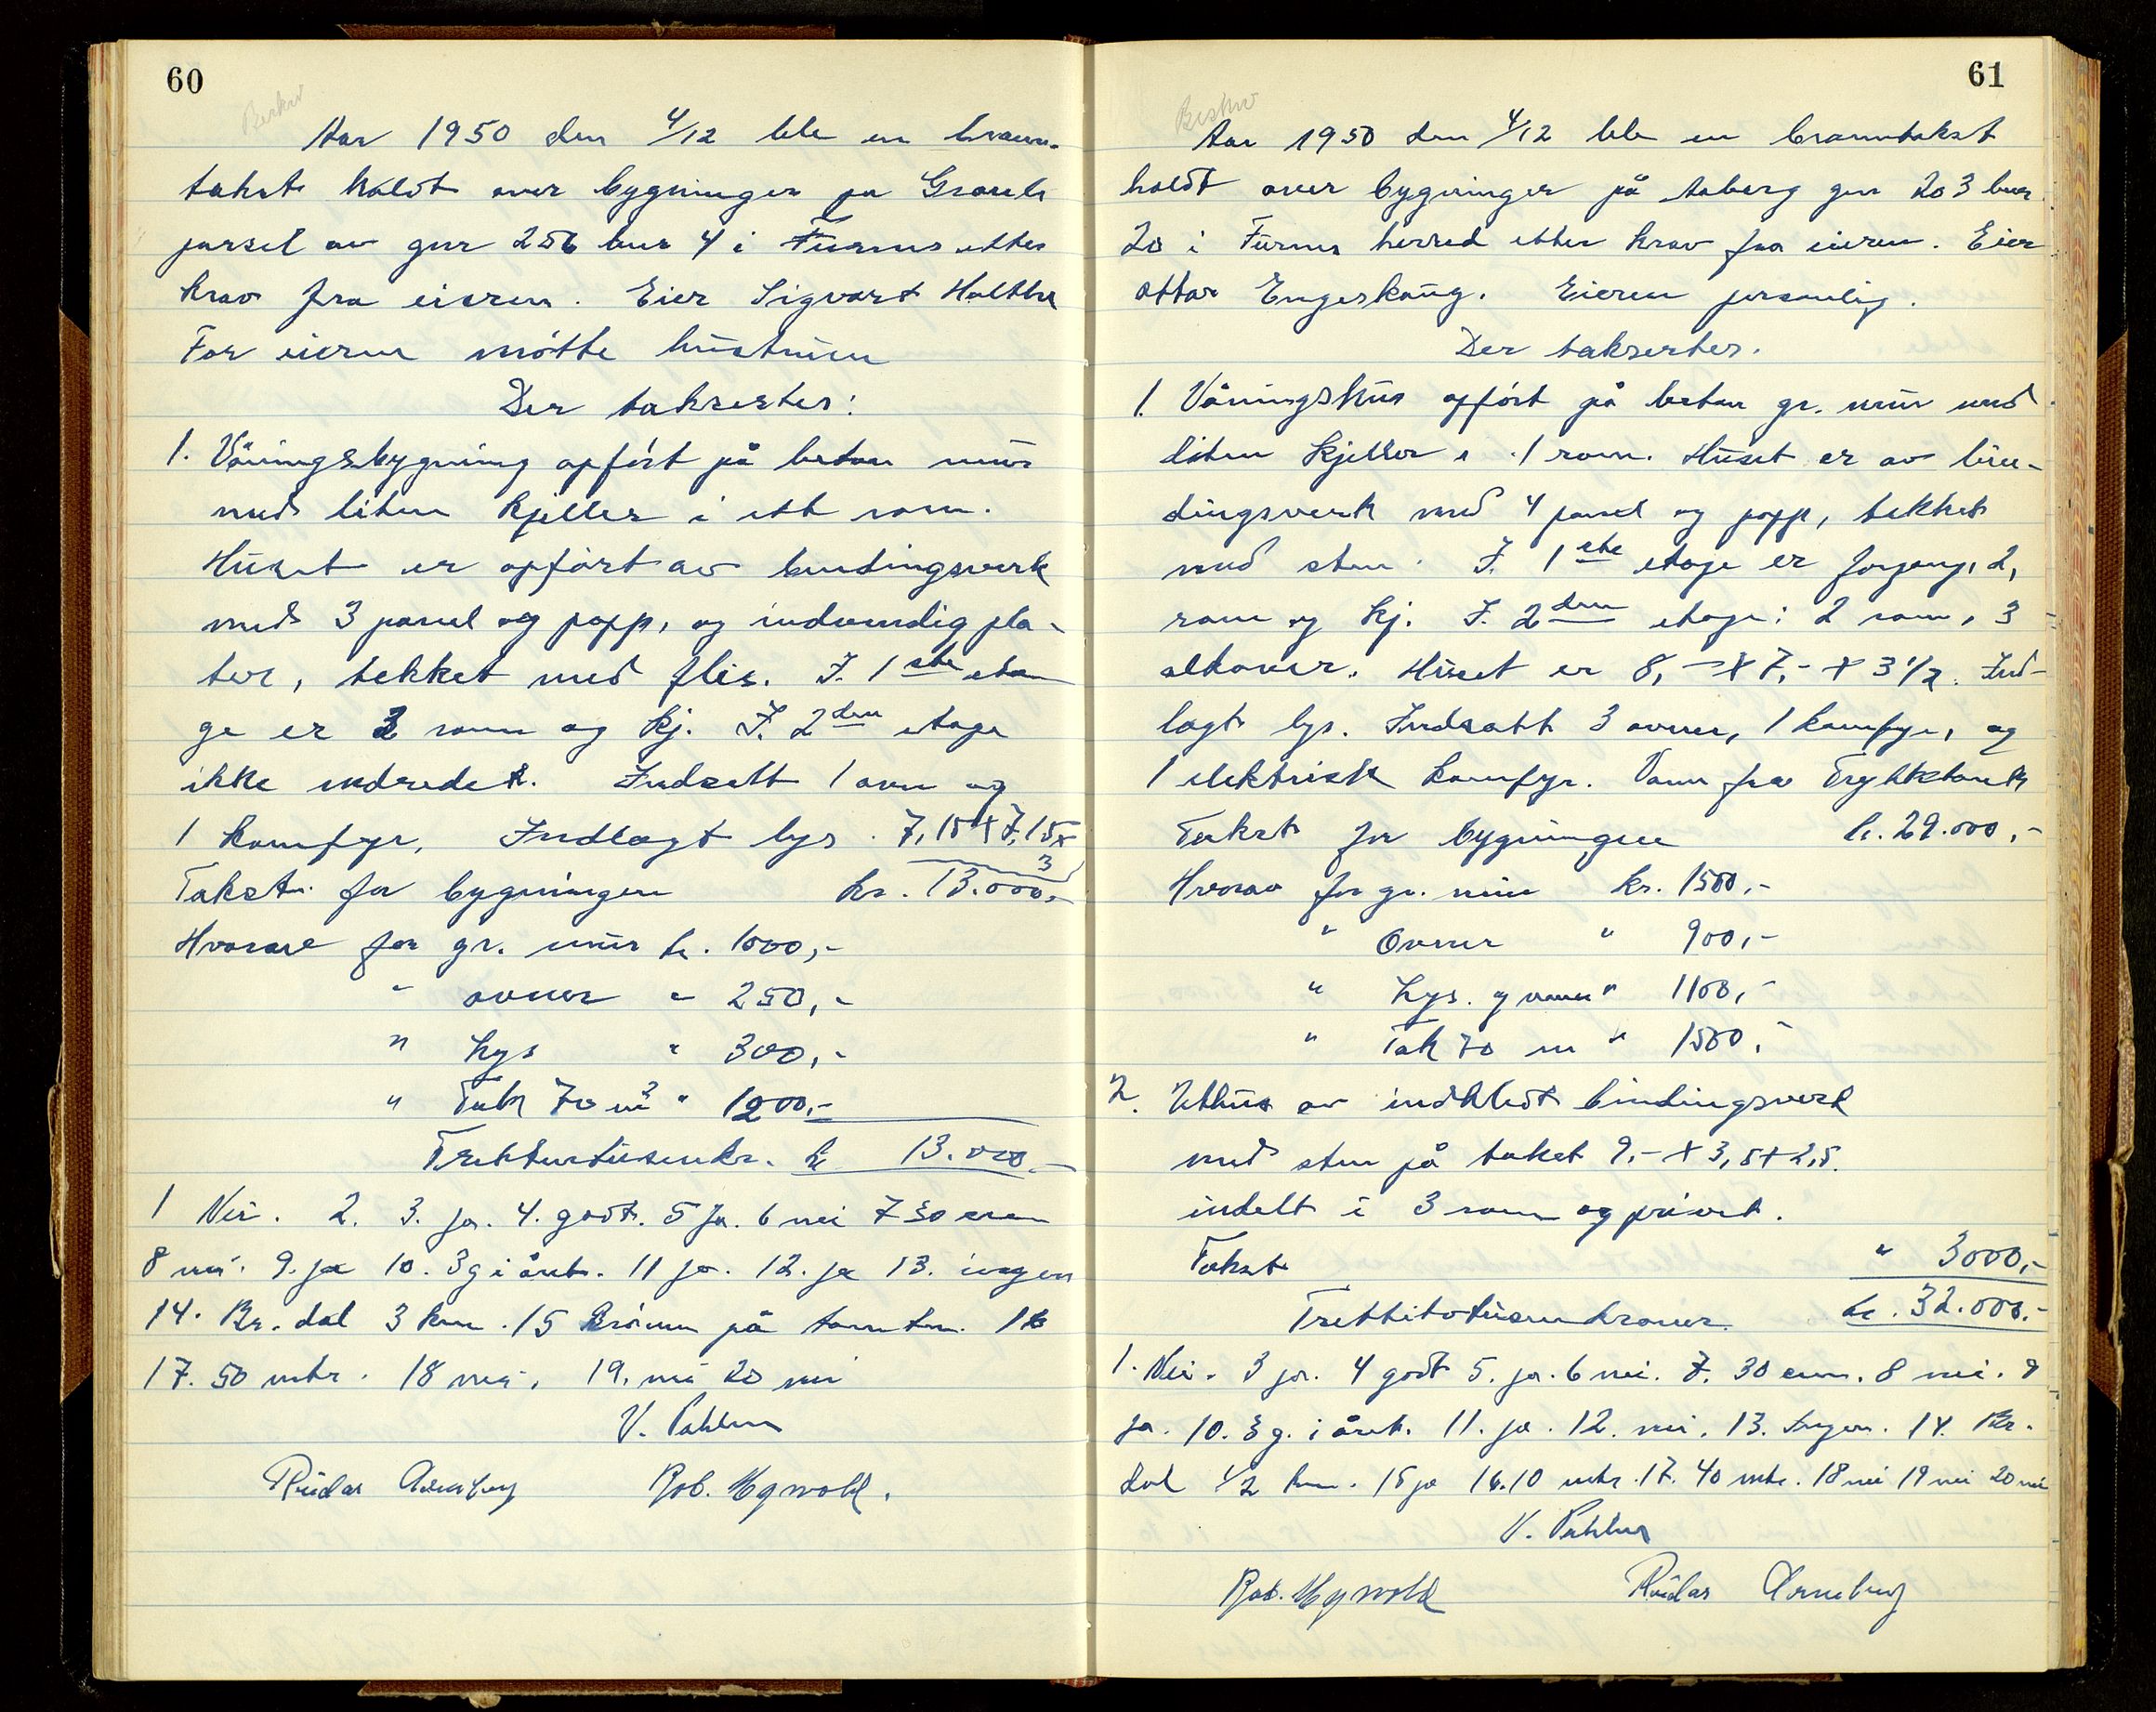 60
Aar 1950 den 4/12 ble en brann-
takst holdt over bygninger på
parsel av gnr 256 bnr 4 i Furnes etter
krav fra eieren. Eier Sigvart
For eieren møtte hustruen
Der taksertes:
1. Våningsbygning opført på beton mur
med liten kjeller i ett rom.
Huset er opført av bindingsverk
med 3 panel og papp, og indvendig pla-
ter, tekket med flis. I. 1ste eta-
ge er 2 rom og kj. I. 2den etage
ikke indredet. Indsatt 1 ovn og
1 komfyr, Indlagt lys. 7,15 x 7,15 x
3
Takst for bygningen kr. 13.000,-
Hvorav for gr. mur kr. 1000,-
" ovner " 250,-
" Lys " 300,-
" Tak 70 m2 " 1200,-
Trettentusenkr. kr 13.000,-
1 Nei. 2. 3. ja. 4. godt. 5 ja. 6 nei 7 30 cm
8 nei. 9. ja 10. 3 g i året. 11 ja. 12. ja 13. ingen
14. Br.dal 3 km. 15 Brønn på tomten. 16
17. 50 mtr. 18 nei. 19. nei 20 nei
V. Pahlm
Reidar Arneberg Rob. Mgwold.
61
Aar 1950 den 4/12 ble en branntakst
holdt over bygninger på Aaberg gnr 203 bnr
20 i Furnes herred etter krav fra eieren. Eier
Ottar Engeskaug. Eieren personlig.
Der takserter.
1. Våningshus opført på beton gr. mur med
liten kjeller i 1 rom. Huset er av bin-
dingsverk med 4 panel og papp, tekket
med sten. I. 1ste etage er forgang, 2,
rom og kj. I. 2den etage: 2 rom, 3
alkover. Huset er 8,- x 7,- x 3 1/2. Ind-
lagt lys. Indsatt 3 ovner, 1 komfyr, og
1 elektrisk komfyr. Vann fra Trykktank
Takst for bygningen kr. 29.000,-
Hvorav for gr. mur kr. 1500,-
" Ovner " 900,-
" Lys. og vann " 1100,-
" Tak 70 m " 1500,-
2. Uthus av indkledt bindingsverk
med sten på taket 9,- x 3,5 x 2,5.
indelt i 3 rom og privet.
Takst " 3000,-
Trettitotusenkroner. kr. 32.000,-
1. Nei. 3 ja. 4 godt 5. ja. 6 nei. 7. 30 cm. 8 nei. 9
ja. 10. 3 g. i året. 11. ja. 12. nei. 13. Ingen. 14. Br.
dal 1/2 km. 15 ja 16. 10 mtr. 17. 40 mtr. 18 nei 19 nei 20 nei
V. Pahlm
Rob. Mgwold Reidar Arneberg